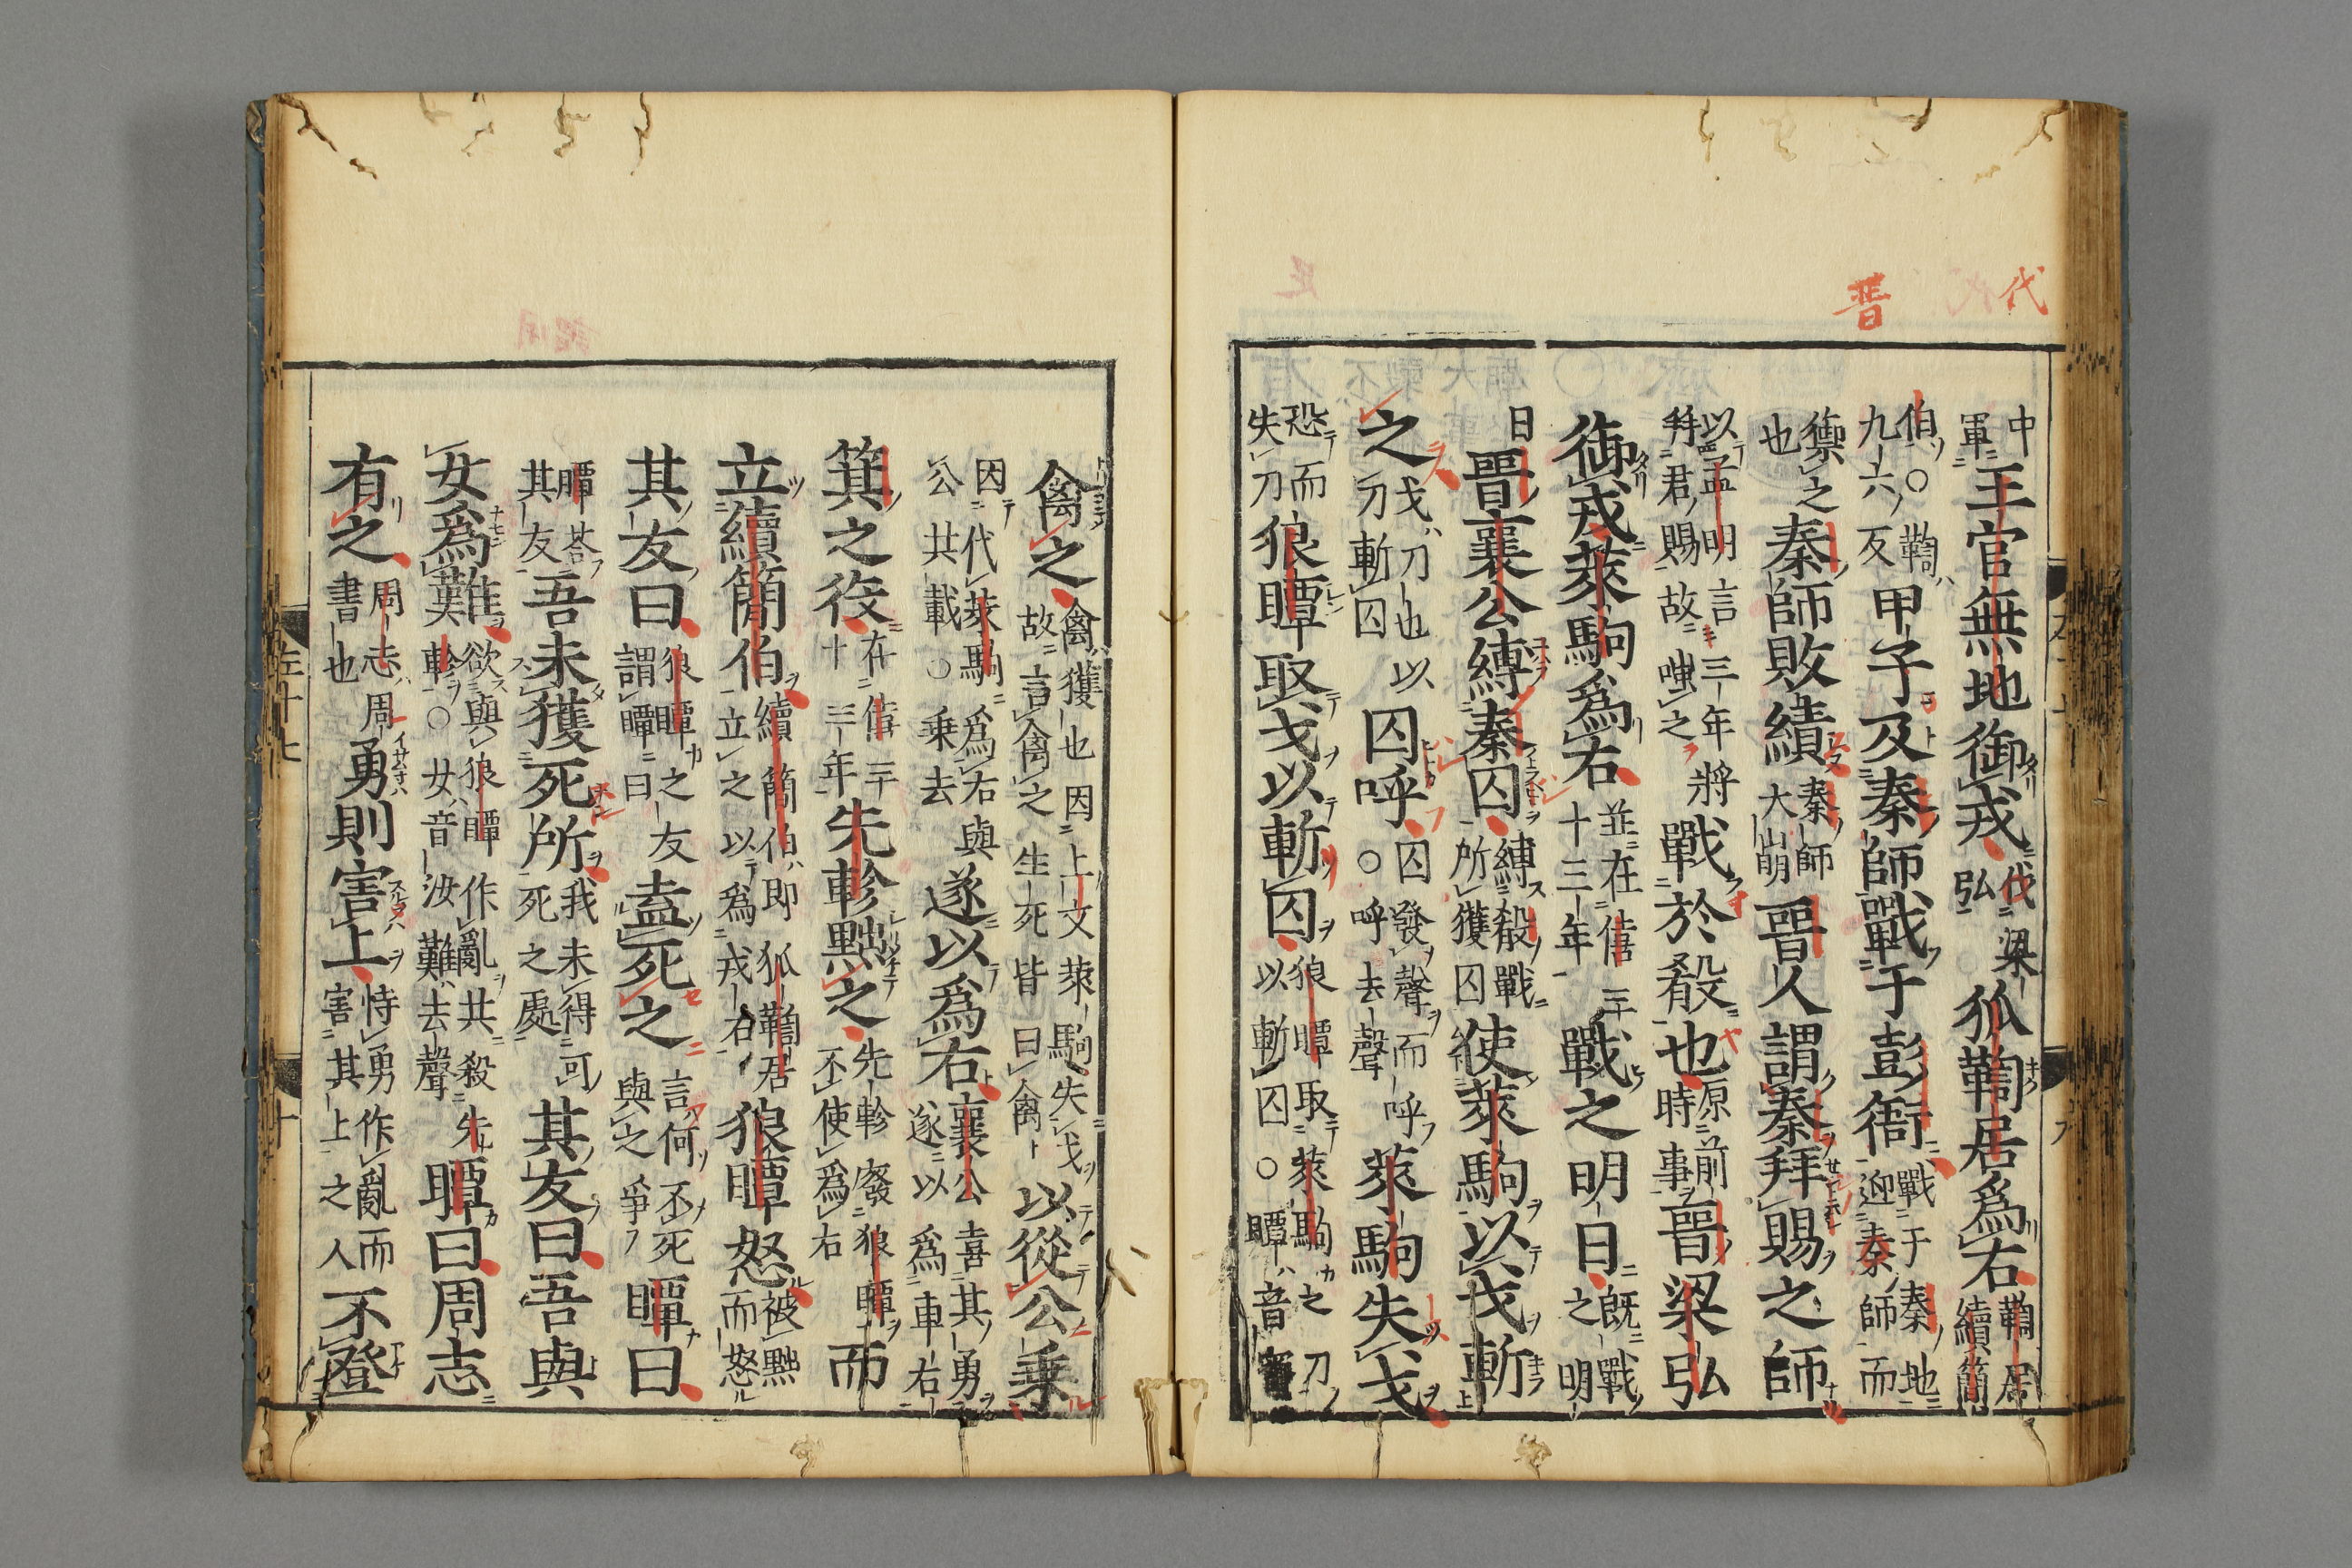 代
晉
中軍王官無地御戎代梁弘狐鞫居爲右鞫居續簡
伯○鞫九六反甲子及秦師戰于彭衙戰于秦地迎秦師而
禦之也秦師敗績秦師大崩晉人謂秦拜賜之師
以孟明言三年將拜君賜故嗤之戰於殽也原前時事晉梁弘
御戎萊駒爲右並在僖三十三年戰之明日既戰之明
日晉襄公縛秦囚縛殽戰所獲囚使萊駒以戈斬
之戈刀也以刃斬囚囚呼囚發聲而呼○呼去聲萊駒失戈
恐而失刀狼瞫取戈以斬囚狼瞫取萊駒之刀以斬囚○瞫音
禽之禽獲也因上文萊駒失戈故言禽之生死皆曰禽以從公乘
因代萊駒爲右與公共載○乘去遂以爲右襄公喜其勇遂以爲車右
箕之役在僖三十三年先軫黜之先軫廢狼瞫不使爲右而
立續簡伯續簡伯即狐鞫居立之以爲戎右狼瞫怒被黜而怒
其友曰狼瞫之友謂瞫曰盍死之言何不死與之爭瞫曰
瞫荅其友吾未獲死所我未得可死之處其友曰吾與
女爲難欲與狼瞫作亂共殺先軫○女音汝難去聲瞫曰周志
有之周志周書也勇則害上恃勇作亂而害其上之人不登
左十七
十